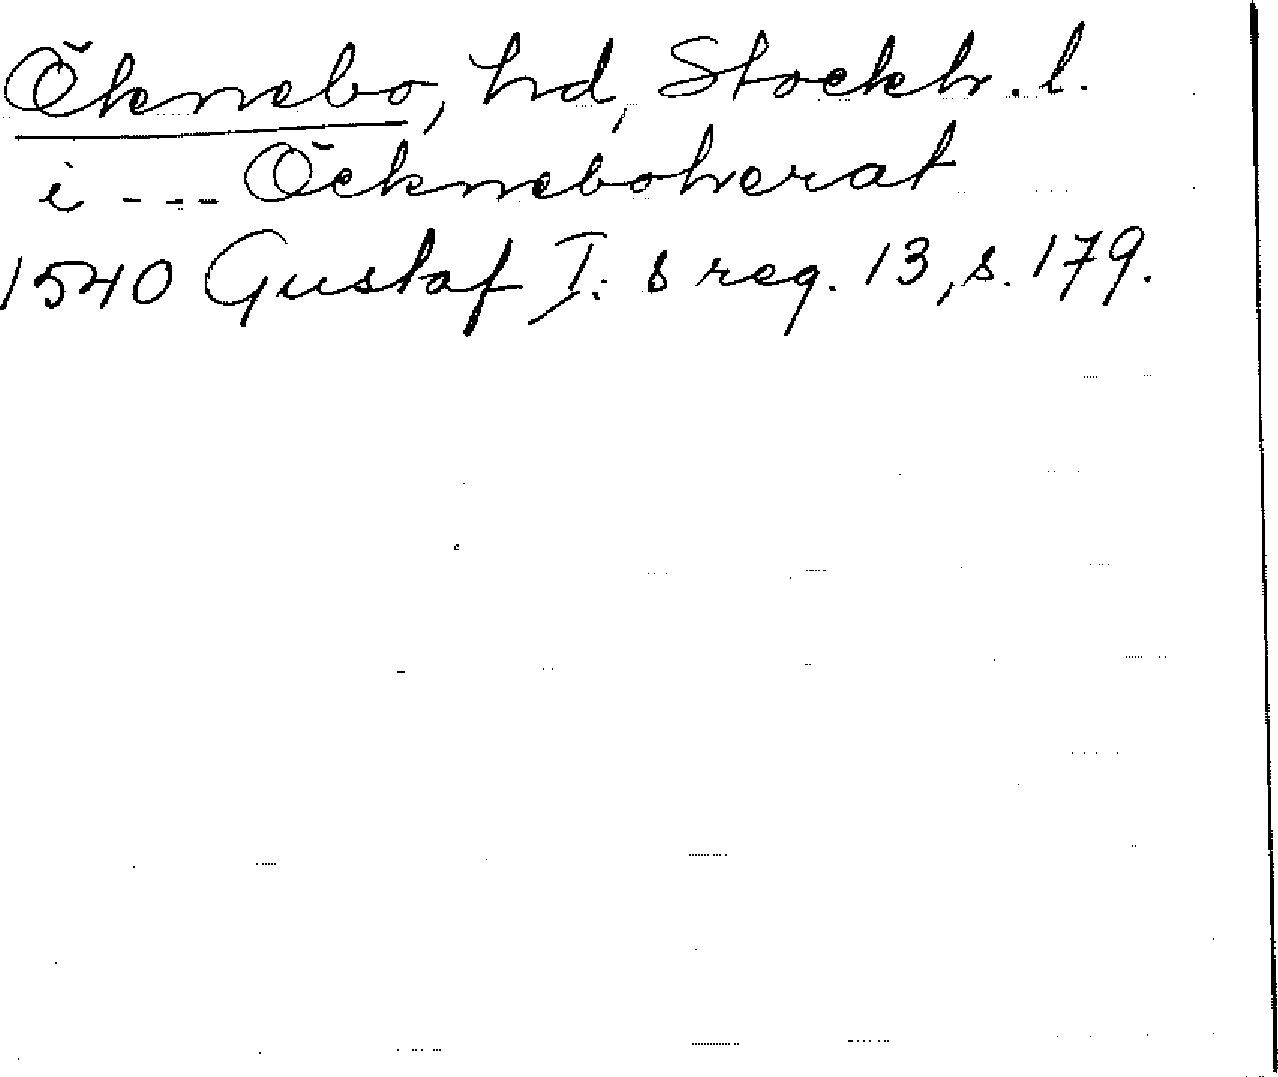 Öknebo, hd, Stockh. l.
i --- Öckneboherat
1540 Gustaf I:s reg. 13, s. 179.